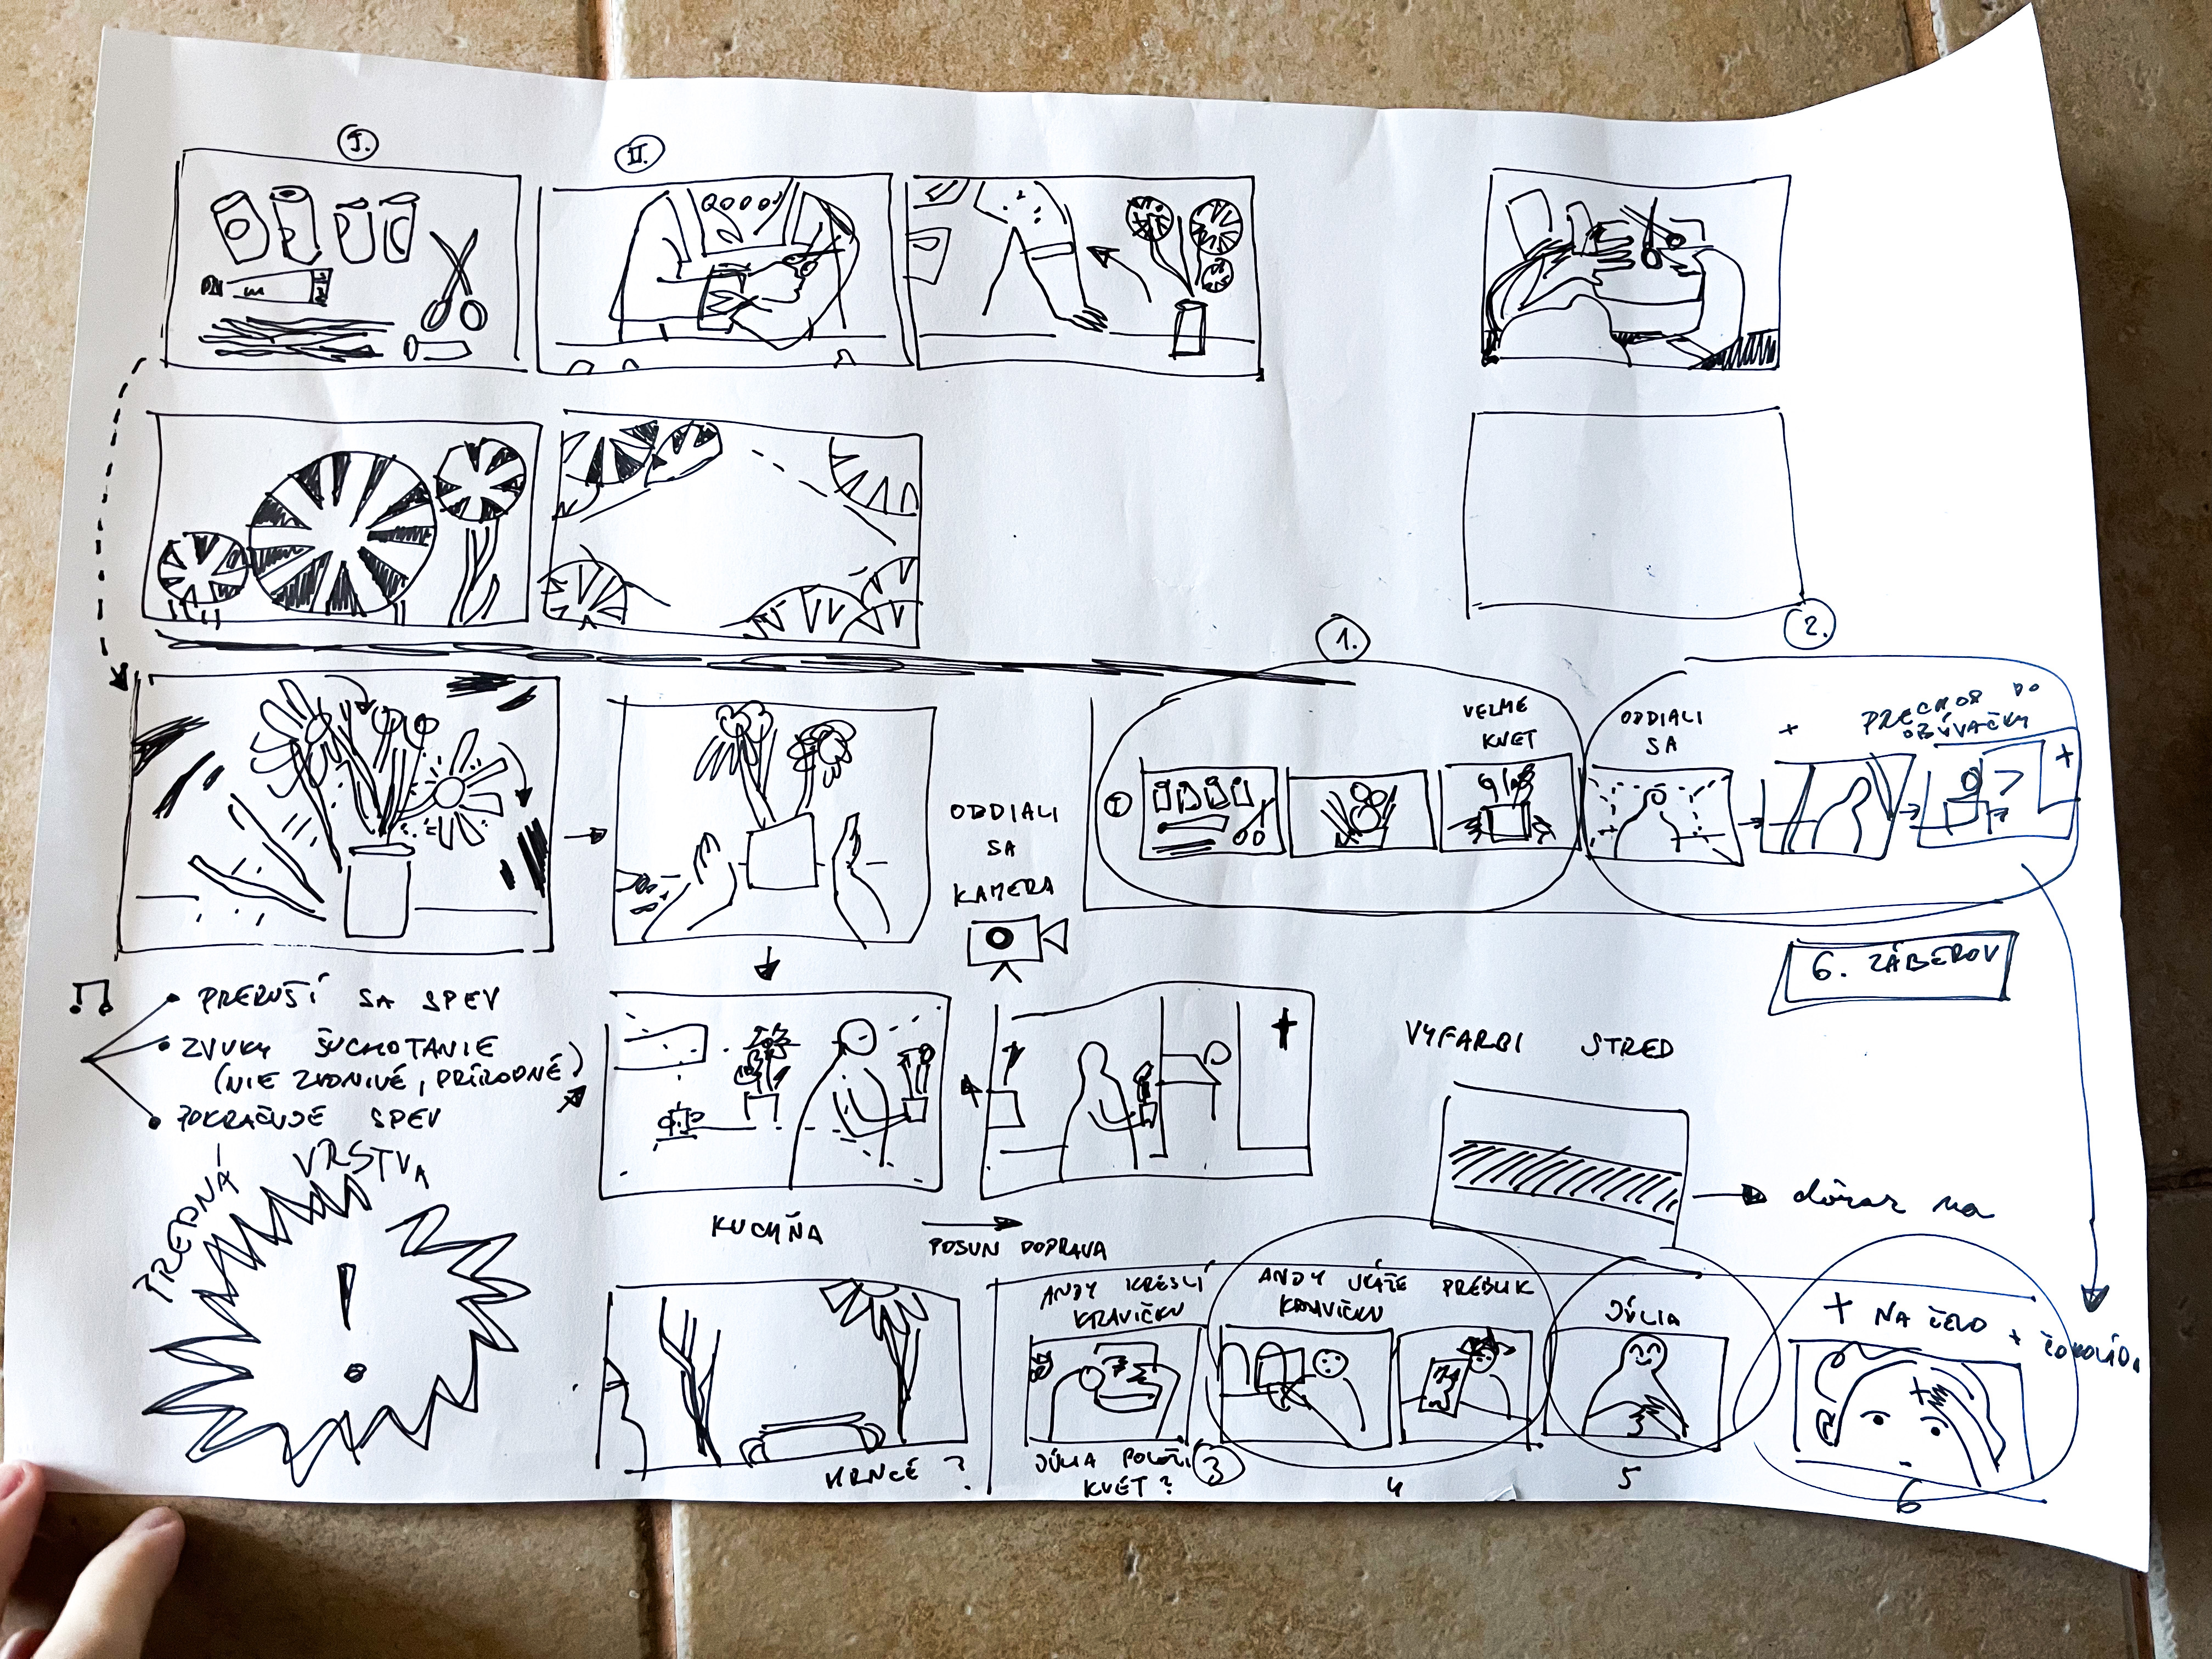 I.
II.
1.
2.
VEZME
KVET
ODDIALI
SA
PRECHOD DO
OBÝVAČKY
I
ODDIALI
SA
KAMERA
6. ZÁBEROV
PRERUŠÍ SA SPEV
ZVUKY ŠUCHOTANIE
(NIE ZVONIVÉ, PRÍRODNÉ)
POKRAČUJE SPEV
PREDNÁ VRSTVA
!
KUCHYŇA
POSUN DOPRAVA
VYFARBI STRED
dôraz na
HRNCE ?
ANDY KRESLÍ
KRAVIČKU
JÚLIA POLOŽÍ
KVET ?
3
ANDY UKÁŽE
KRAVIČKU
4
JÚLIA
5
+ NA ČELO
+ ČOKOLÁDA
6